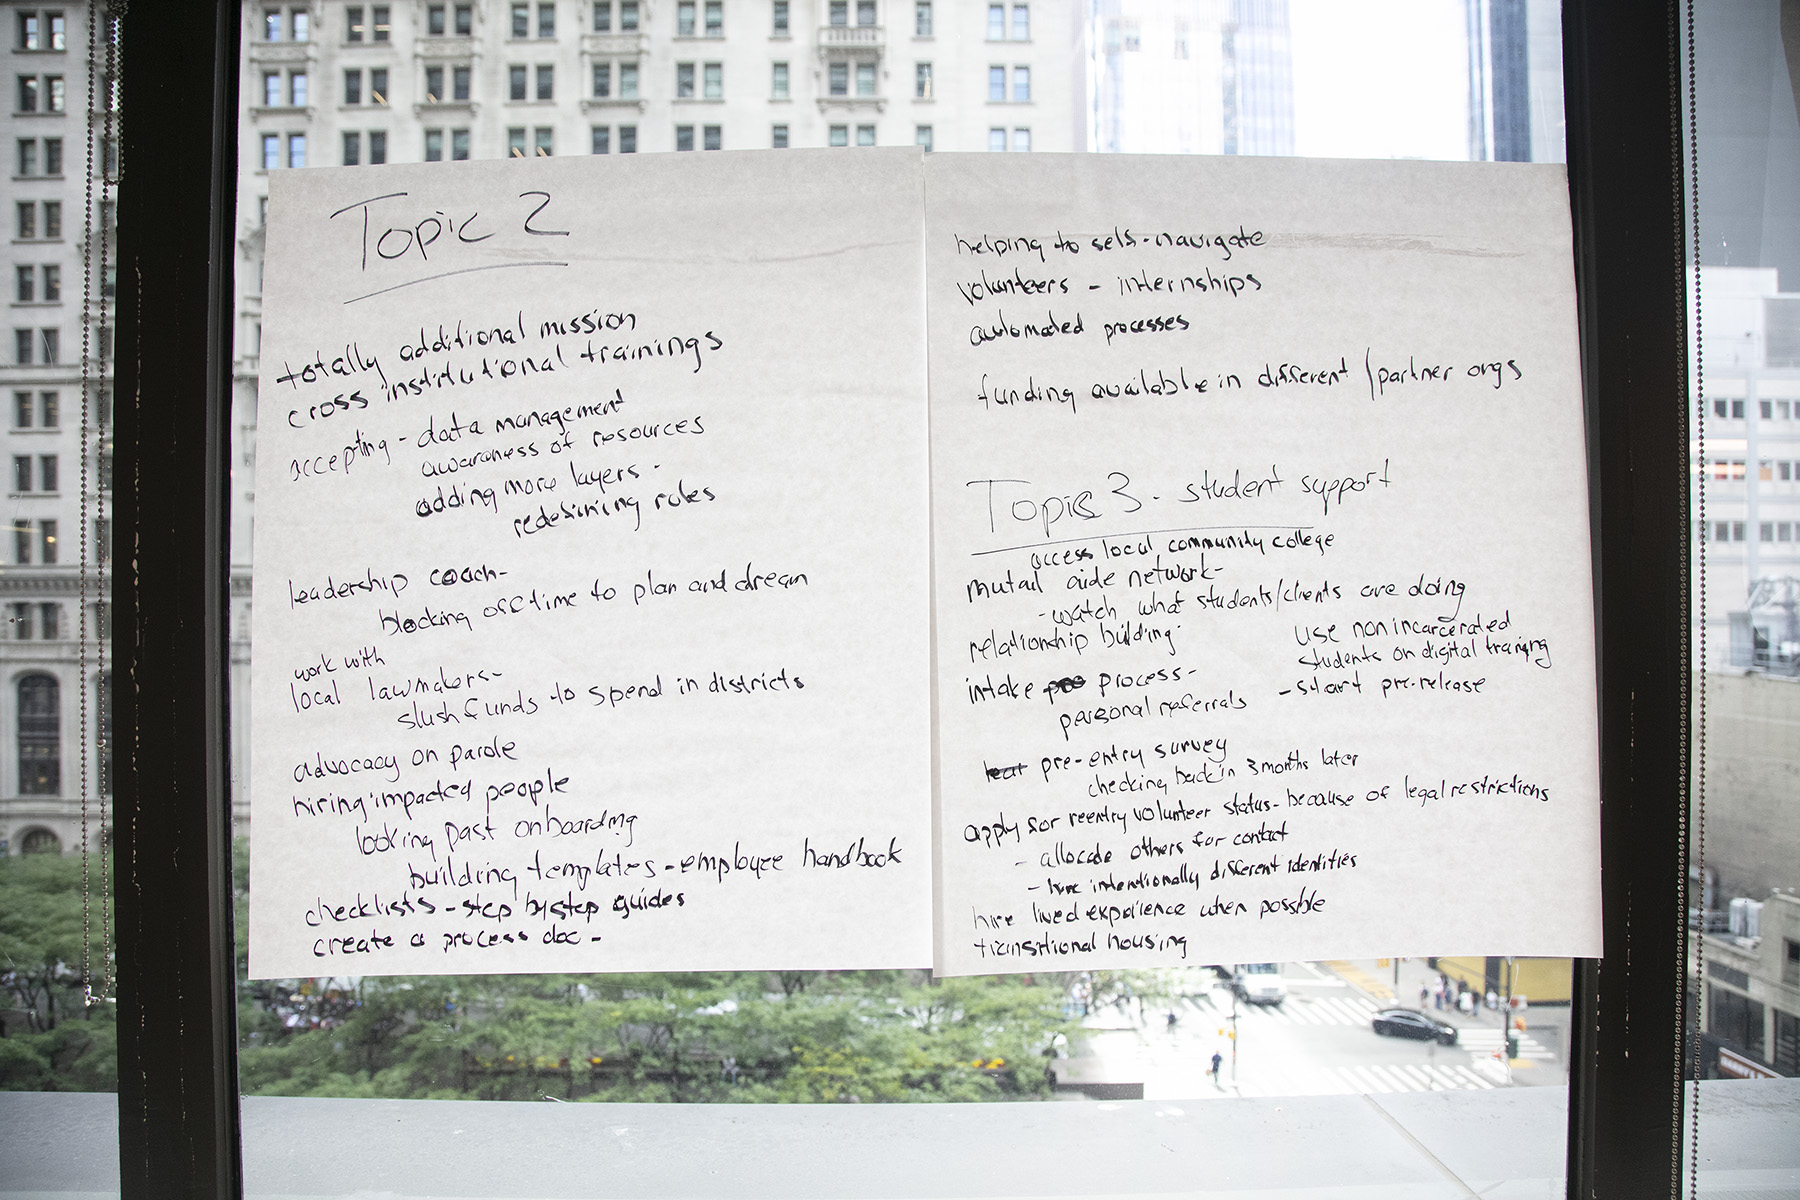 Topic 2
totally additional mission
cross institutional trainings
accepting - data management
awareness of resources
adding more layers -
redefining roles
leadership coach -
blocking off time to plan and dream
work with
local lawmakers -
slush funds to spend in districts
advocacy on parole
hiring impacted people
looking past onboarding
building templates - employee handbook
checklists - step by step guides
create a process doc -
helping to self-navigate
volunteers - internships
automated processes
funding available in different / partner orgs
Topic 3 - student support
access local community college
mutail aide network -
- watch what students/clients are doing
relationship building
intake process -
personal referrals
use non incarcerated
students on digital training
- start pre-release
pre-entry survey
checking back in 3 months later
apply for reentry volunteer status - because of legal restrictions
- allocate others for contact
- hire intentionally different identities
hire lived experience when possible
transitional housing